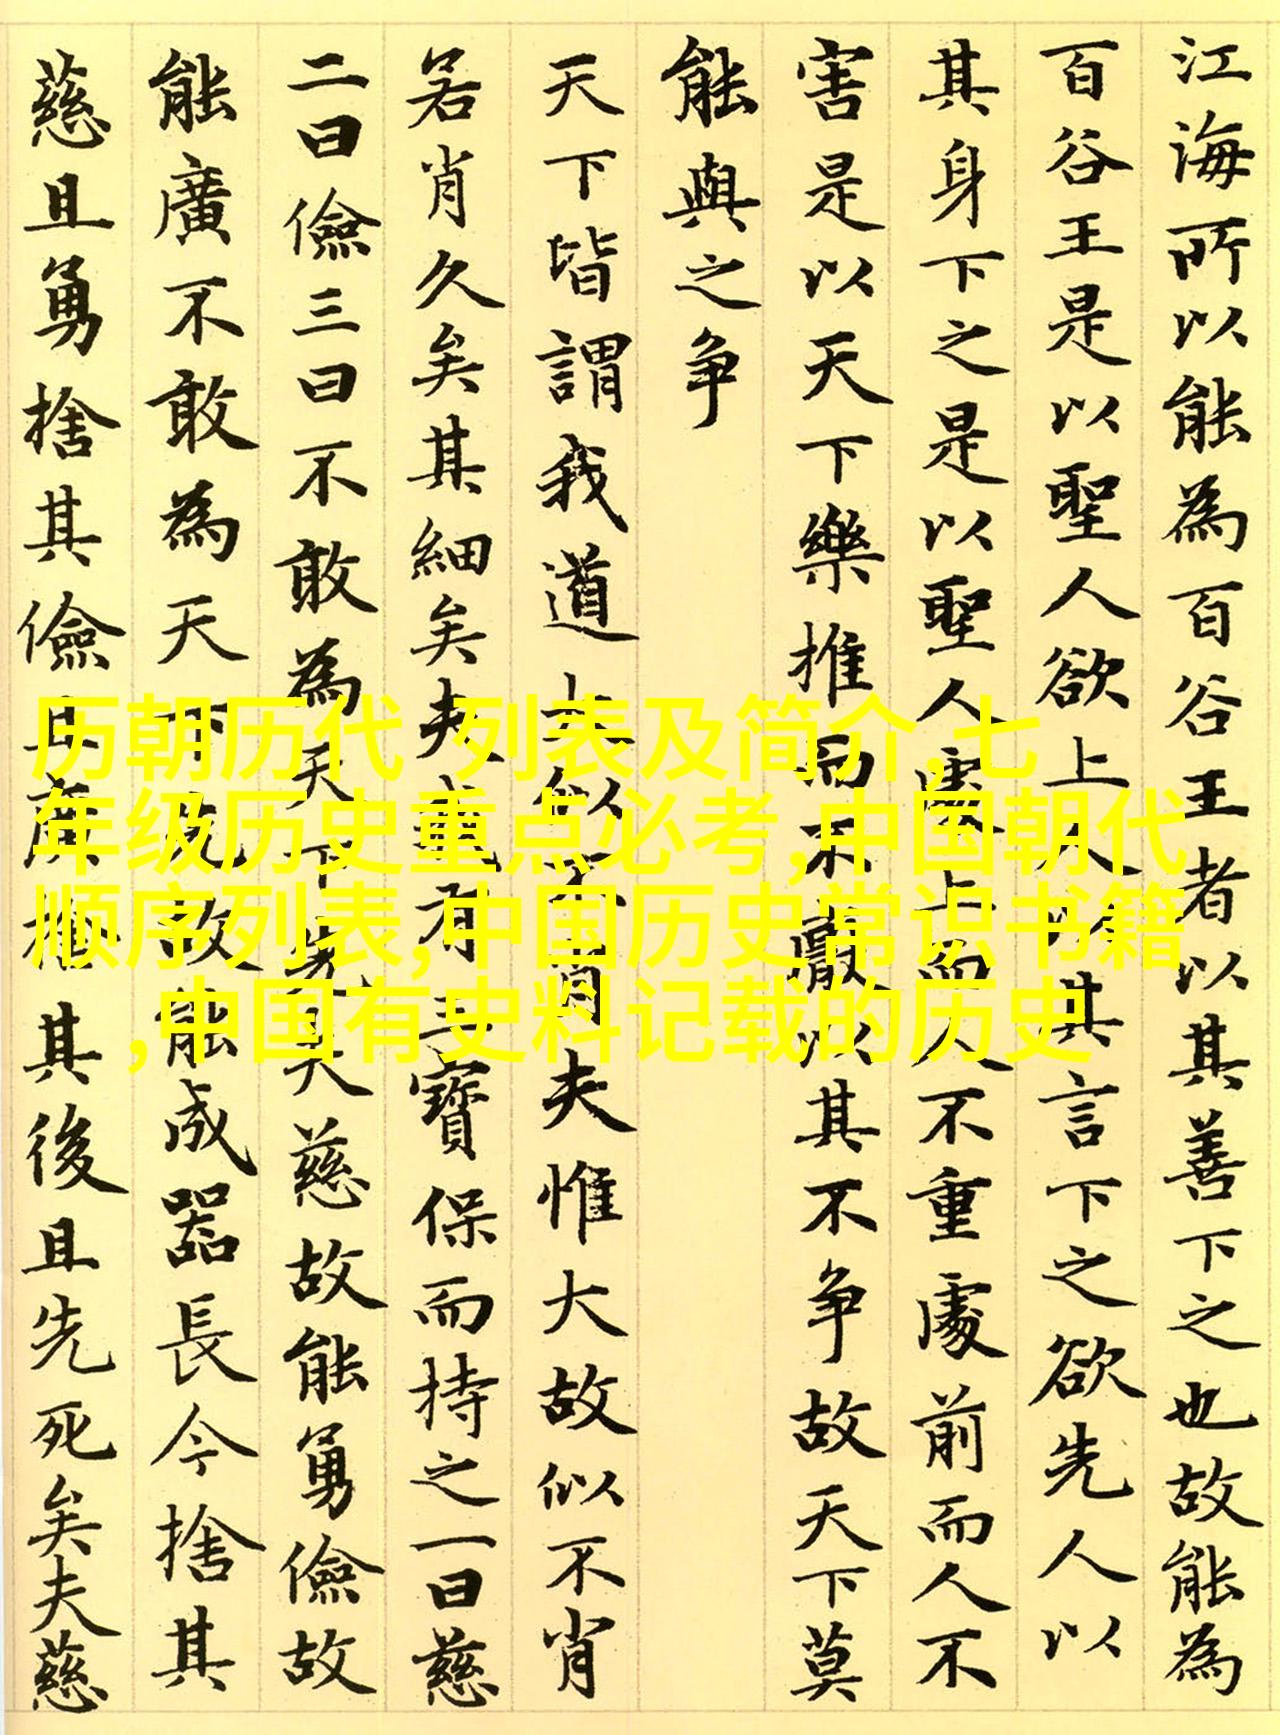 江海所以能為百谷王者以其善下之也故能為
百谷王是以聖人欲上人以其言下之欲先人以
其身下之是以聖人處上而人不重處前而人不
害是以天下樂推而不厭以其不争故天下莫
能與之争
天下皆謂我道大似不肖夫惟大故似不肖
若肖久矣其細矣夫我有三寶保而持之一曰慈
二曰儉三曰不敢為天下先夫慈故能勇儉故
能廣不敢為天下先故能成器長今捨其
慈且勇捨其儉且廣捨其後且先死矣夫慈
历朝历代 列表及简介,七
年级历史重点必考,中国朝代
顺序列表,中国历史常识书籍
,中国有史料记载的历史